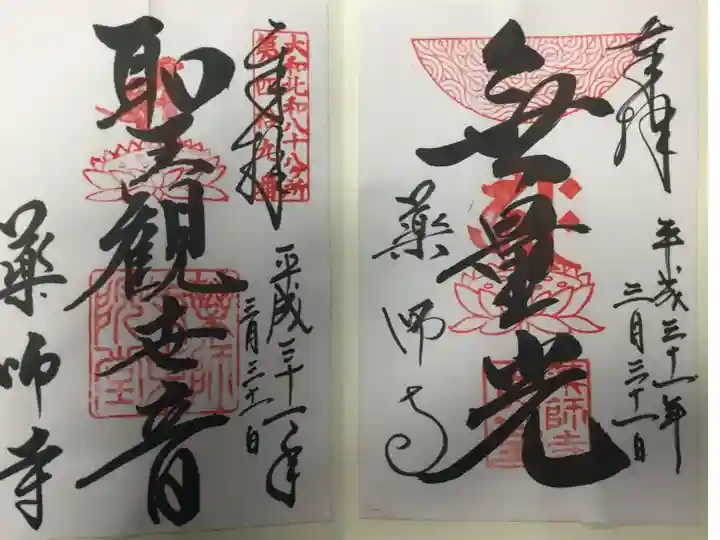 奉拝
平成三十一年
三月三十一日
無量光
薬師寺
薬師寺
奉拝
大和北部八十八ヶ所
平成三十一年
三月三十一日
聖観世音
薬師寺